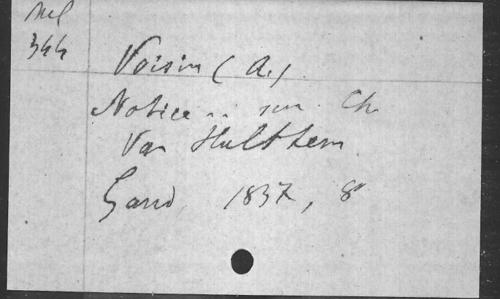 Mel
344
Voisin (A.)
Notice .. sur Ch.
Van Hulthem.
Gand, 1837, 8°